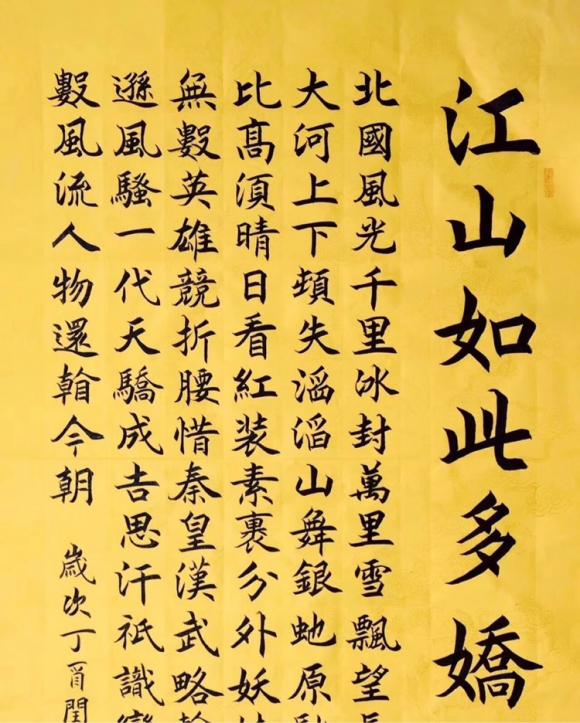 江山如此多嬌
北國風光千里冰封萬里雪飄望長
大河上下頓失滔滔山舞銀虵原馳
比高須晴日看紅装素裹分外妖
無數英雄競折腰惜秦皇漢武略
遜風騷一代天驕成吉思汗祇識彎
數風流人物還看今朝
歲次丁酉閏